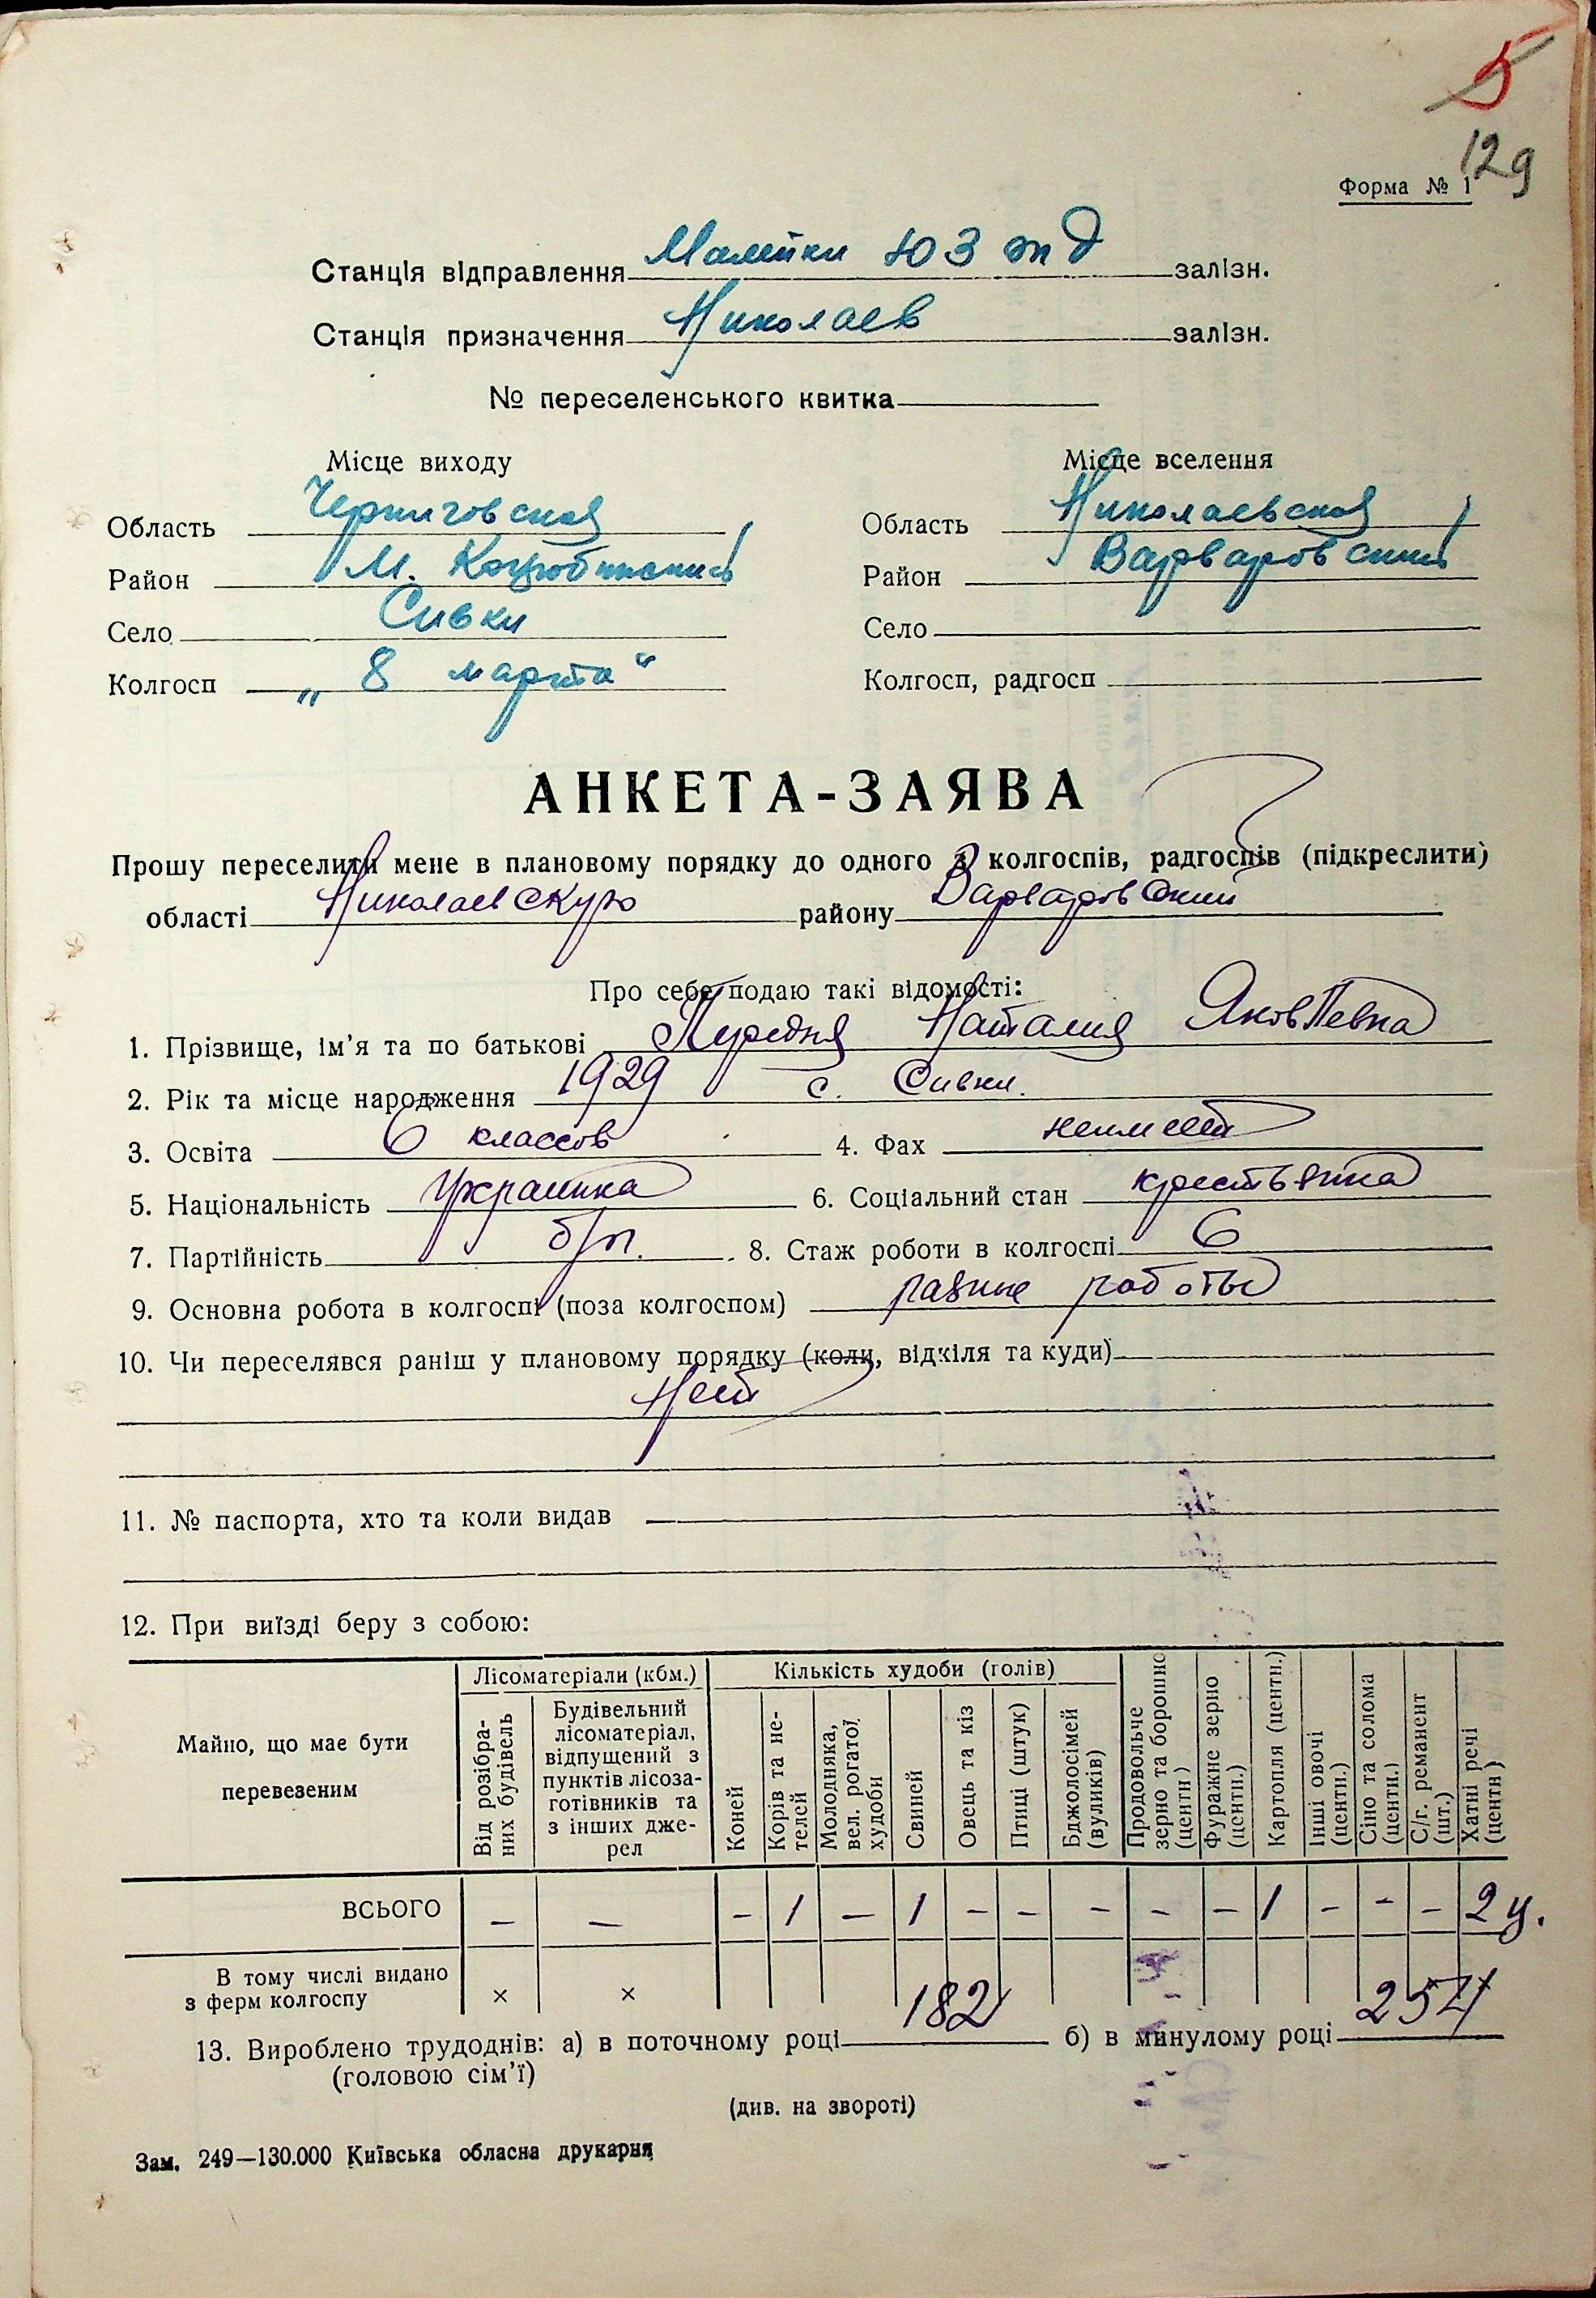 5
129
Форма № 1
Станція відправлення Малейки ЮЗ жд залізн.
Станція призначення Николаев залізн.
№ переселенського квитка
Місце виходу
Область Черниговская
Район М. Коцюбинский
Село Сивки
Колгосп „8 марта“
Місце вселення
Область Николаевская
Район Варваровский
Село
Колгосп, радгосп
АНКЕТА-ЗАЯВА
Прошу переселити мене в плановому порядку до одного з колгоспів, радгоспів (підкреслити)
області Николаевскую району Варваровский
Про себе подаю такі відомості:
1. Прізвище, ім’я та по батькові Наталия Яковлевна
2. Рік та місце народження 1929 с. Сивки.
3. Освіта 6 классов 4. Фах неимеет
5. Національність Украинка 6. Соціальний стан крестьянка
7. Партійність б/п. 8. Стаж роботи в колгоспі 6
9. Основна робота в колгоспі (поза колгоспом) разные работы
10. Чи переселявся раніш у плановому порядку (коли, відкіля та куди)
Нет
11. № паспорта, хто та коли видав
12. При виїзді беру з собою:
Майно, що має бути перевезеним
Лісоматеріали (кбм.)
Від розібраних будівель
Будівельний лісоматеріал, відпущений з пунктів лісозаготівників та з інших джерел
Кількість худоби (голів)
Коней
Корів та нетелей
Молодняка, вел. рогатої худоби
Свиней
Овець та кіз
Птиці (штук)
Бджолосімей (вуликів)
Продовольче зерно та борошно (центн)
Фуражне зерно (центн.)
Картопля (центн.)
Інші овочі (центн.)
Сіно та солома (центн.)
С/г. реманент (шт.)
Хатні речі (центн)
ВСЬОГО — — – 1 — 1 – – – – – 1 – – – 2 ц.
В тому числі видано з ферм колгоспу × ×
13. Вироблено трудоднів: а) в поточному році 182 б) в минулому році 254
(головою сім’ї)
(див. на звороті)
Зам. 249—130.000 Київська обласна друкарня